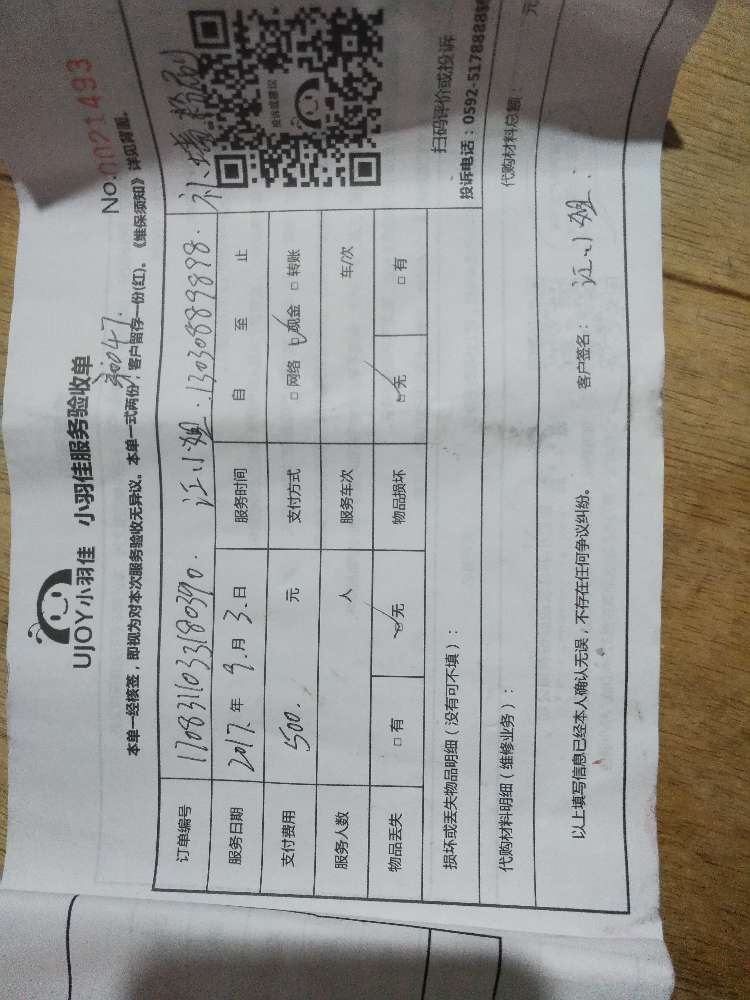 UJOY小羽佳 小羽佳服务验收单
No.0021493
本单一经核签，即视为对本次服务验收无异议。本单一式两份，客户留存一份(红)。《维保须知》详见背面。
订单编号 1708311033180390. 江小姐.13030889898.
服务日期 2017.年9.月3.日 服务时间 自 至 止
支付费用 500. 元 支付方式 □网络 ☑现金 □转账
服务人数 人 服务车次 车/次
物品丢失 □有 ☑无 物品损坏 ☑无 □有
投诉或建议
扫码评价或投诉
投诉电话：0592-5178888转
损坏或丢失物品明细（没有可不填）：
代购材料明细（维修业务）： 代购材料总额： 元
以上填写信息已经本人确认无误，不存在任何争议纠纷。 客户签名： 江小姐.